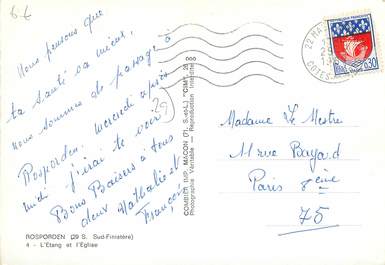 Nous pensons que
ta santé va mieux,
nous sommes de passage à
Rosporden. mercredi après
midi j'irai te voir
Bons Baisers à tous
deux Nathalie et
François
29
ROSPORDEN (29 S. Sud-Finistère)
4 - L'Etang et l'Eglise
COMBIER IMP. MACON (71. S.-et-L.) "CIM"
Photographie Véritable - Reproduction Interdite
REPUBLIQUE FRANÇAISE
0,30
PARIS
Madame Le Mestre
11 rue Bayard
Paris 8ème
75